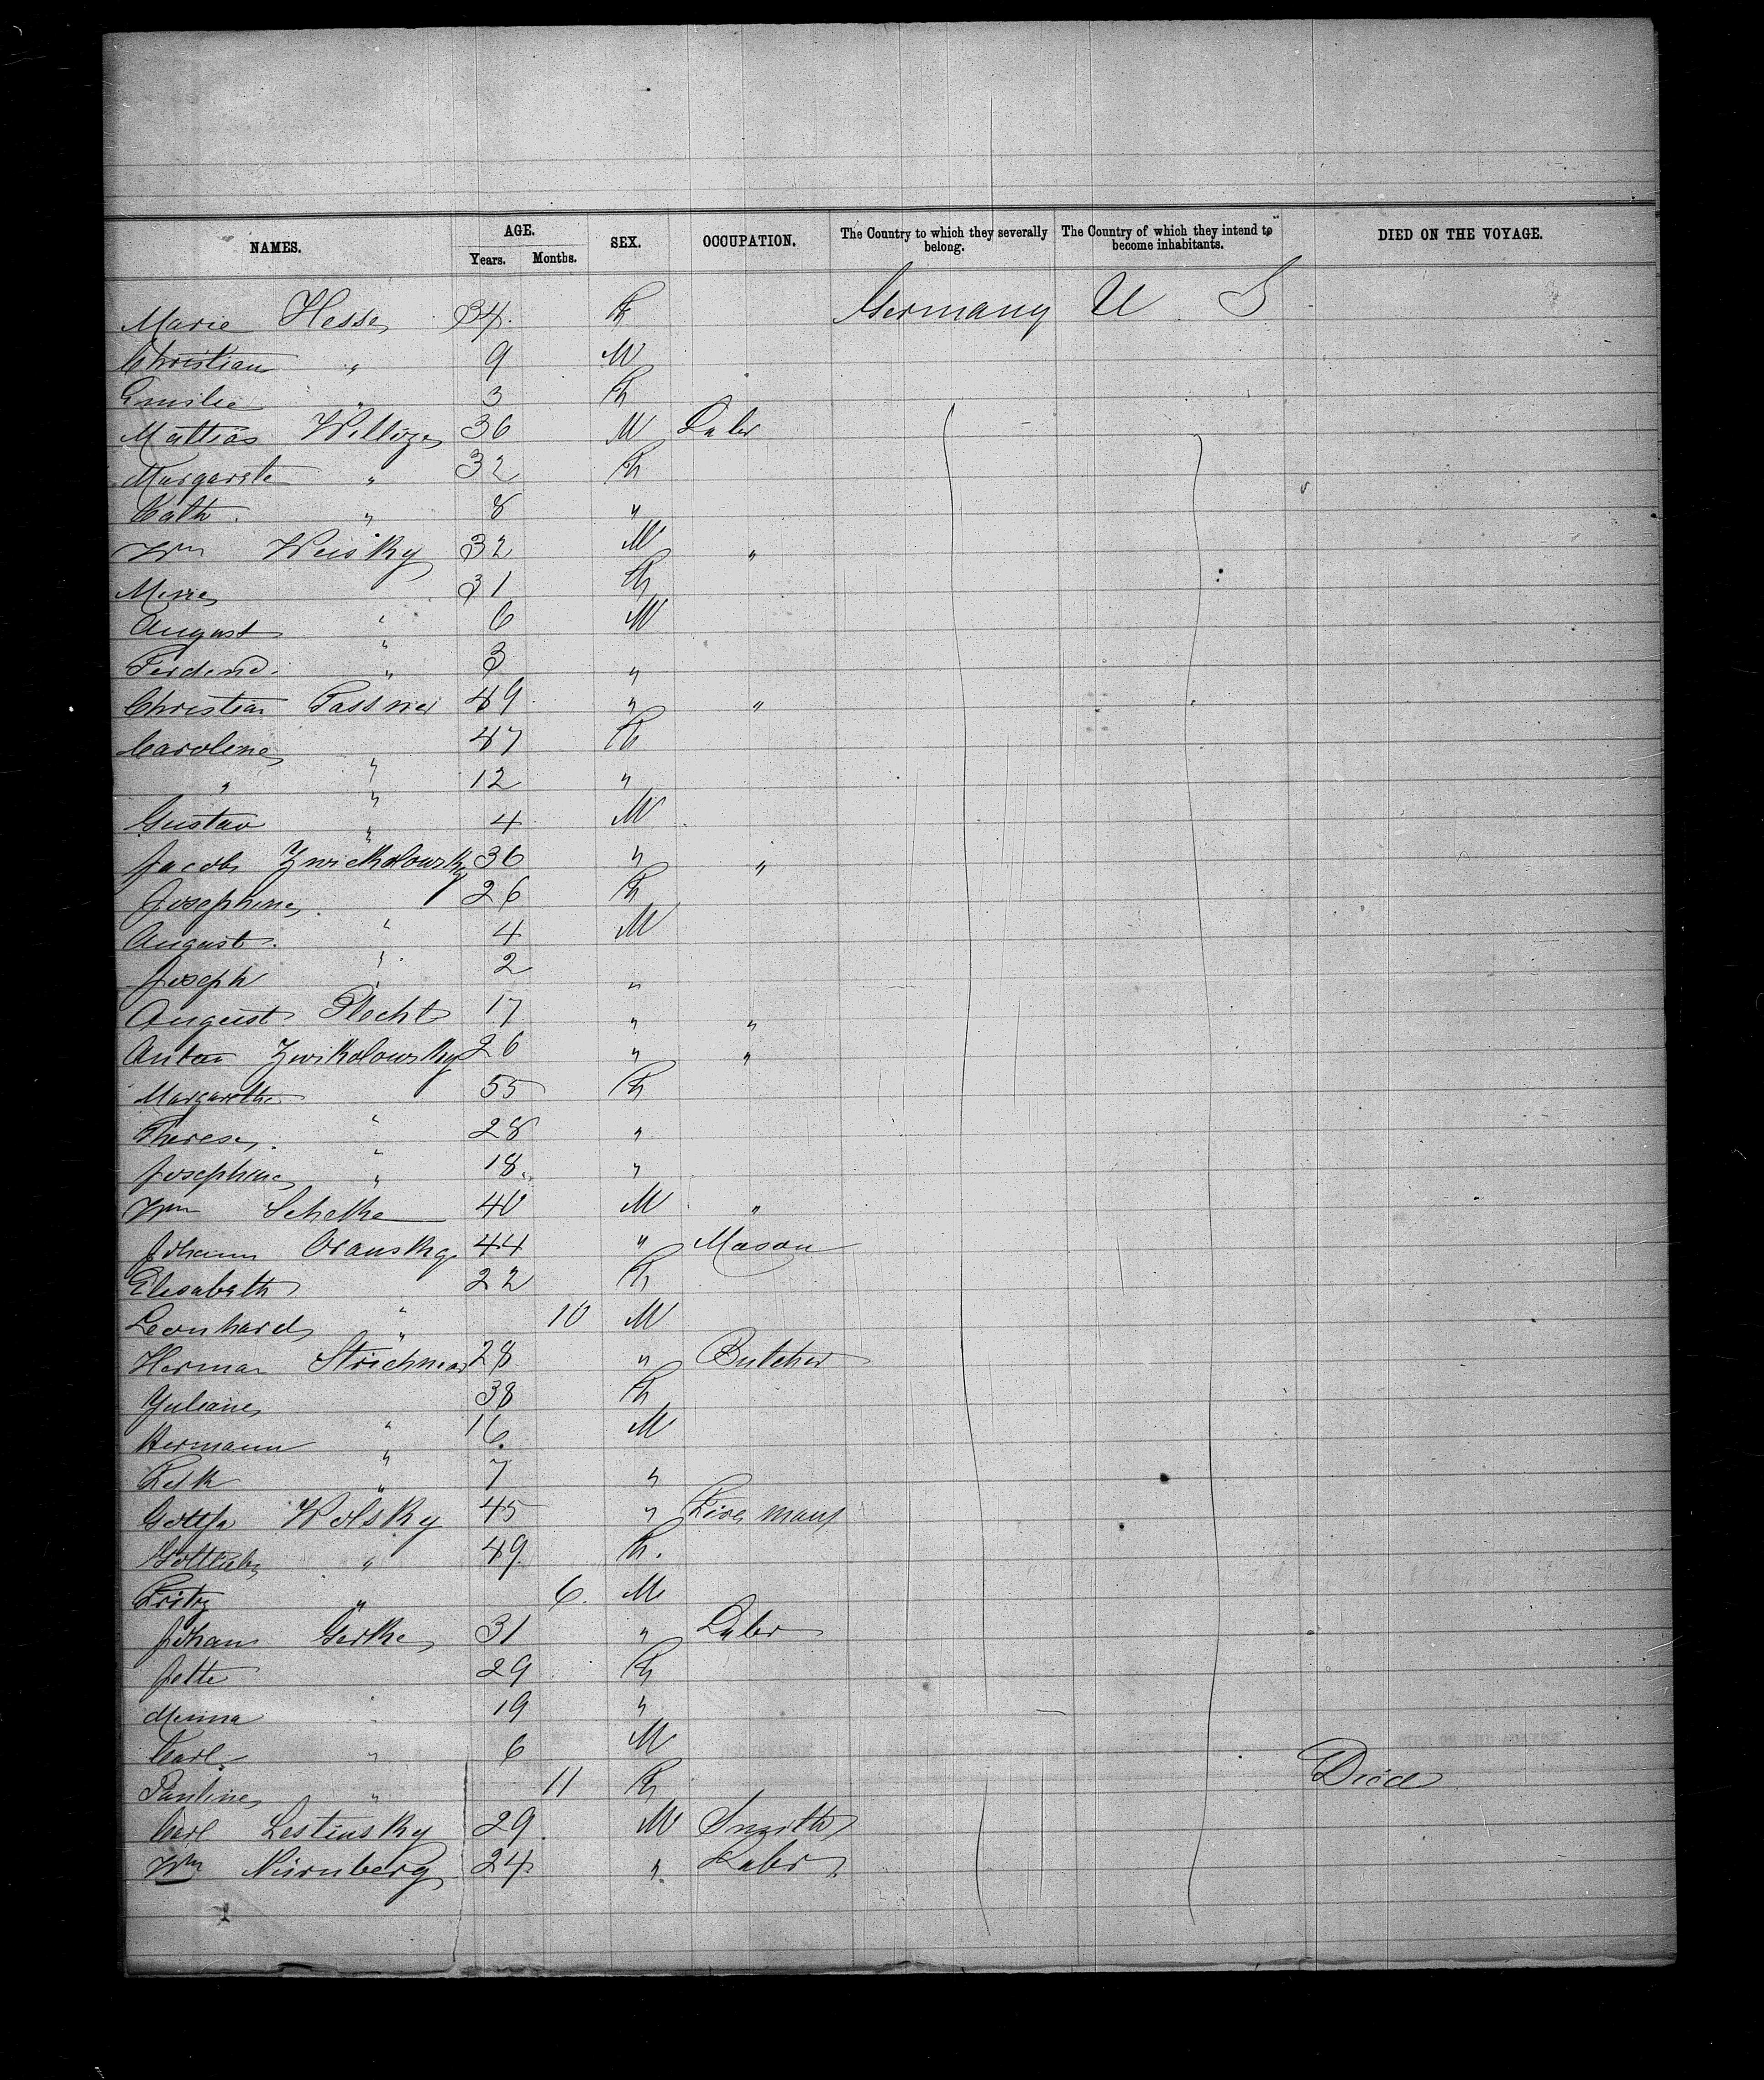 NAMES. AGE. Years. Months. SEX. OCCUPATION. The Country to which they severally belong. The Country of which they intend to become inhabitants. DIED ON THE VOYAGE.
Marie Hesse 34 F Germany U S
Christian " 9 M
Emilie " 3 F
Mattias 36 M Labr
Margarete " 32 F
Kath. " 8 "
Wm Weisky 32 M "
31 F
August " 6 M
Ferdind. " 3 "
Christian Passner 49 " "
Caroline 47 F
" " 12 "
Gustav " 4 M
Jacob Zwickolowsky 36 " "
Josephine 26 F
August " 4 M
Joseph " 2 "
August Plocht 17 " "
Anton Zwikolowsky 26 " "
Margarethe 55 F
Therese " 28 "
Josephine " 18 "
Wm Schelke 40 M "
Johann Oransky 44 " Mason
Elisabeth 22 F
Leonhard " 10 M
Herman 28 " Butcher
Juliane 38 F
Hermann " 16 M
" 7 "
Wolsky 45 "
Gottlieb " 49 F.
Fritz " 6 M
Johan Gerke 31 " Labr
Jette 29 F
Minna 19 "
Carl " 6 M
Pauline " 11 F Died
Carl Lestinsky 29 M Smith
Wm Nürnberg 24 " Labr